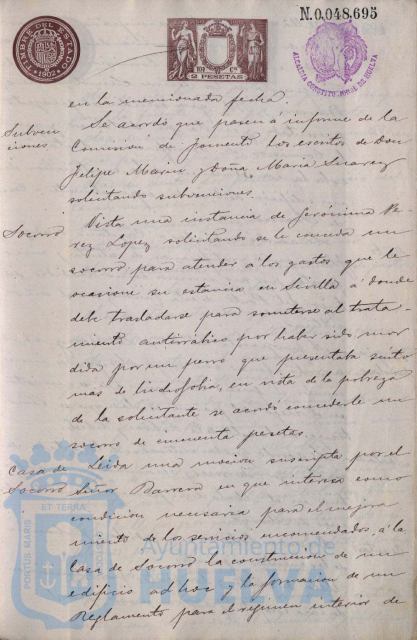 TIMBRE DEL ESTADO
1902
2 PESETAS
N.0,048,695
ALCALDIA CONSTITUCIONAL DE HUELVA
en la mencionada fecha.
Subven
ciones
Se acordó que pasen á informe de la
Comisión de Fomento los escritos de Don
Felipe Marin y Doña Maria Suarez
solicitando subvenciones.
Socorro
Vista una instancia de Jerónima Pe
rez Lopez solicitando se le conceda un
socorro para atender á los gastos que le
ocasione su estancia en Sevilla á donde
debe trasladarse para someterse al trata-
miento antirrábico por haber sido mor
dida por un perro que presentaba sinto
mas de hidrofobia, en vista de la pobreza
de la solicitante se acordó concederle un
socorro de cincuenta pesetas.
Casa de
Socorro
Leida una mocion suscripta por el
Señor Barrera en que interesa como
condicion necesaria para el mejora
miento de los servicios encomendados á la
Casa de Socorro la construccion de un
edificio ad hoc y la formacion de un
Reglamento para el regimen interior de
PORTUS MARIS ET TERRAE
Ayuntamiento de
HUELVA